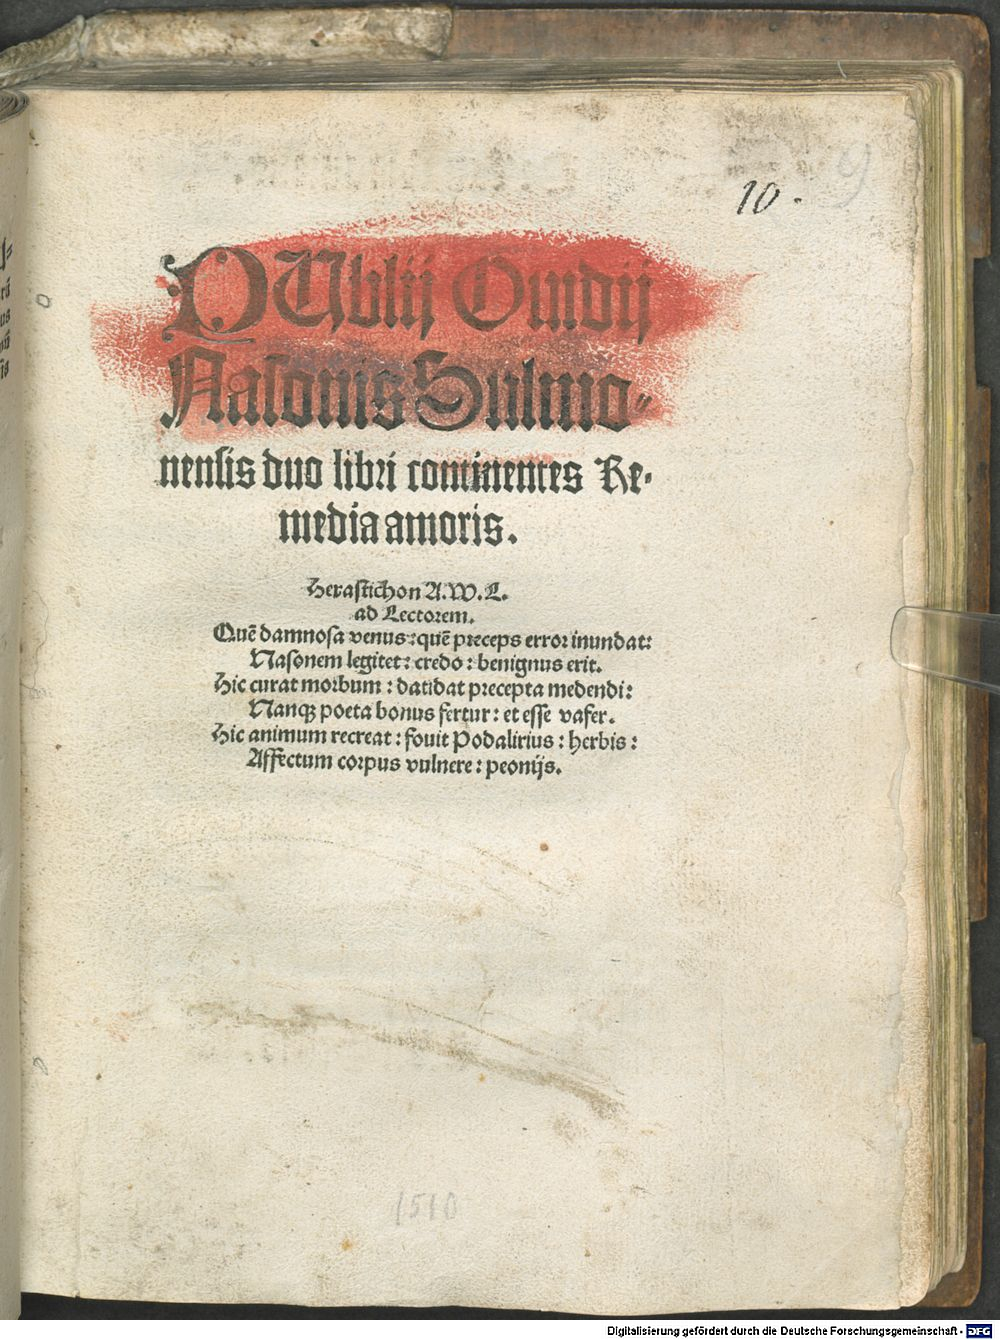 10.
9
PUblij Ouidij
Nasonis Sulmo-
nensis duo libri continentes Re-
media amoris.
Hexastichon A.W.L.
ad Lectorem.
Quē damnosa venus: quē preceps error inundat:
Nasonem legitet: credo: benignus erit.
Hic curat morbum: datidat precepta medendi:
Nanqꝫ poeta bonus fertur: et esse vafer.
Hic animum recreat: fouit Podalirius: herbis:
Affectum corpus vulnere: peonijs.
1510
Digitalisierung gefördert durch die Deutsche Forschungsgemeinschaft - DFG